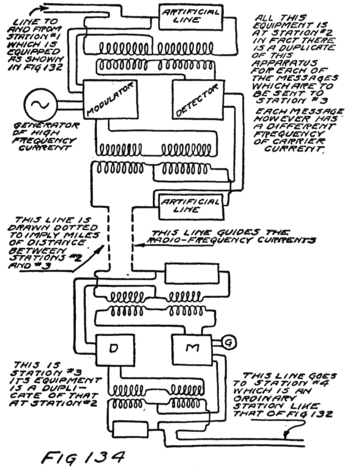 LINE TO
AND FROM
STATION
#1
WHICH IS
EQUIPPED
AS SHOWN
IN FIG 132
ARTIFICIAL
LINE
ALL THIS
EQUIPMENT IS
AT STATION #2
IN FACT THERE
IS A DUPLICATE
OF THIS
APPARATUS
FOR EACH OF
THE MESSAGES
WHICH ARE TO
BE SENT TO
STATION #3
EACH MESSAGE
HOWEVER HAS
A DIFFERENT
FREQUENCY
OF CARRIER
CURRENT.
MODULATOR
DETECTOR
GENERATOR
OF HIGH
FREQUENCY
CURRENT
ARTIFICIAL
LINE
THIS LINE IS
DRAWN DOTTED
TO IMPLY MILES
OF DISTANCE
BETWEEN
STATIONS #2
AND #3
THIS LINE GUIDES THE
RADIO-FREQUENCY CURRENTS
D
M
G
THIS IS
STATION #3
ITS EQUIPMENT
IS A DUPLI-
CATE OF THAT
AT STATION #2
THIS LINE GOES
TO STATION #4
WHICH IS AN
ORDINARY
STATION LIKE
THAT OF FIG 132
FIG 134